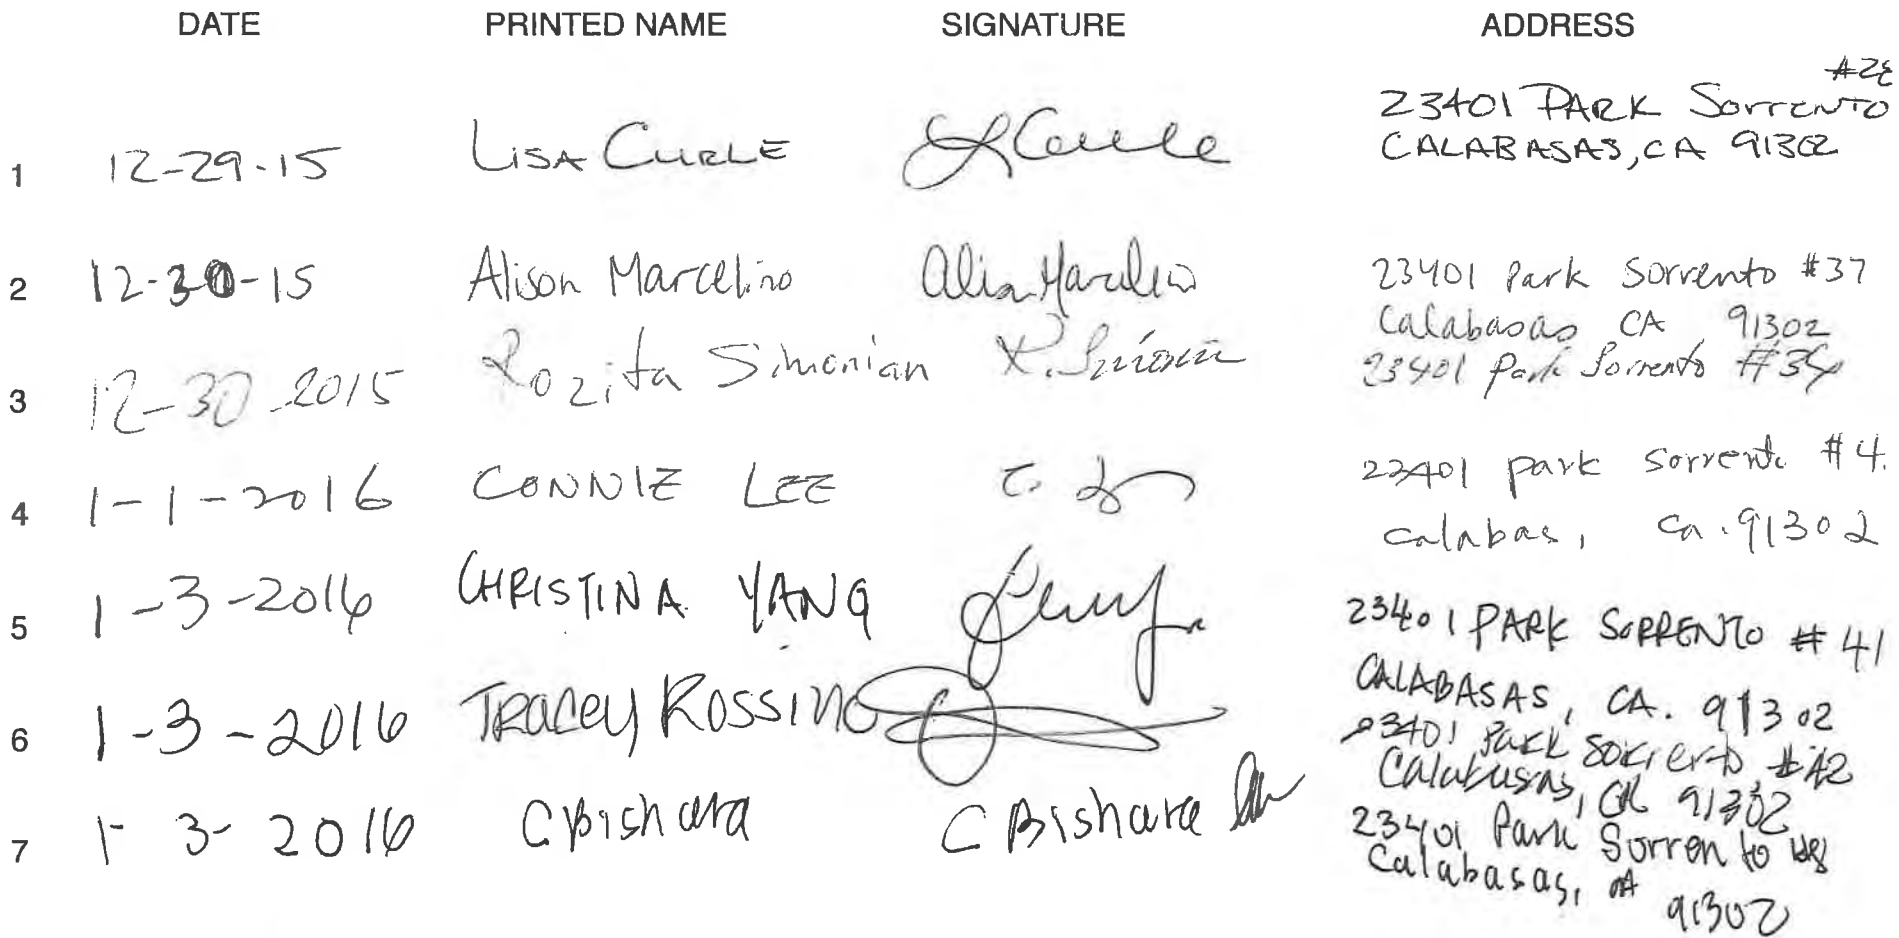 DATE PRINTED NAME SIGNATURE ADDRESS
#28
23401 PARK SORRENTO
1 12-29-15 LISA CURLE LCurle CALABASAS, CA 91302
2 12-30-15 Alison Marcelino 23401 Park Sorrento #37
Calabasas CA 91302
3 12-30-2015 Rozita Simonian R. Simonian 23401 Park Sorrento #34
4 1-1-2016 CONNIE LEE 23401 park sorrento #4.
calabas, ca. 91302
5 1-3-2016 CHRISTINA YANG 23401 PARK SORRENTO # 41
CALABASAS, CA. 91302
6 1-3-2016 TRACEY ROSSINO 23401 Park Sorrento, #42
Calabasas, CA 91302
7 1-3-2016 C Bishara C Bishara 23401 Park Sorrento
Calabasas, CA
91302